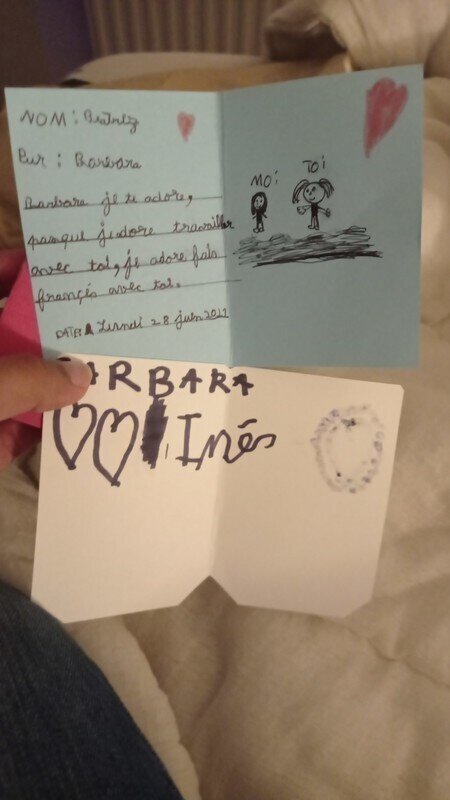 NOM : Beatriz
Pur : Barbara
Barbara je te adore,
parqué jeadore travailler
avec toi, je adore fals
françés avec toi.
DATE: Lundi 28 juin 2021
MOi TOi
BARBARA
Inés